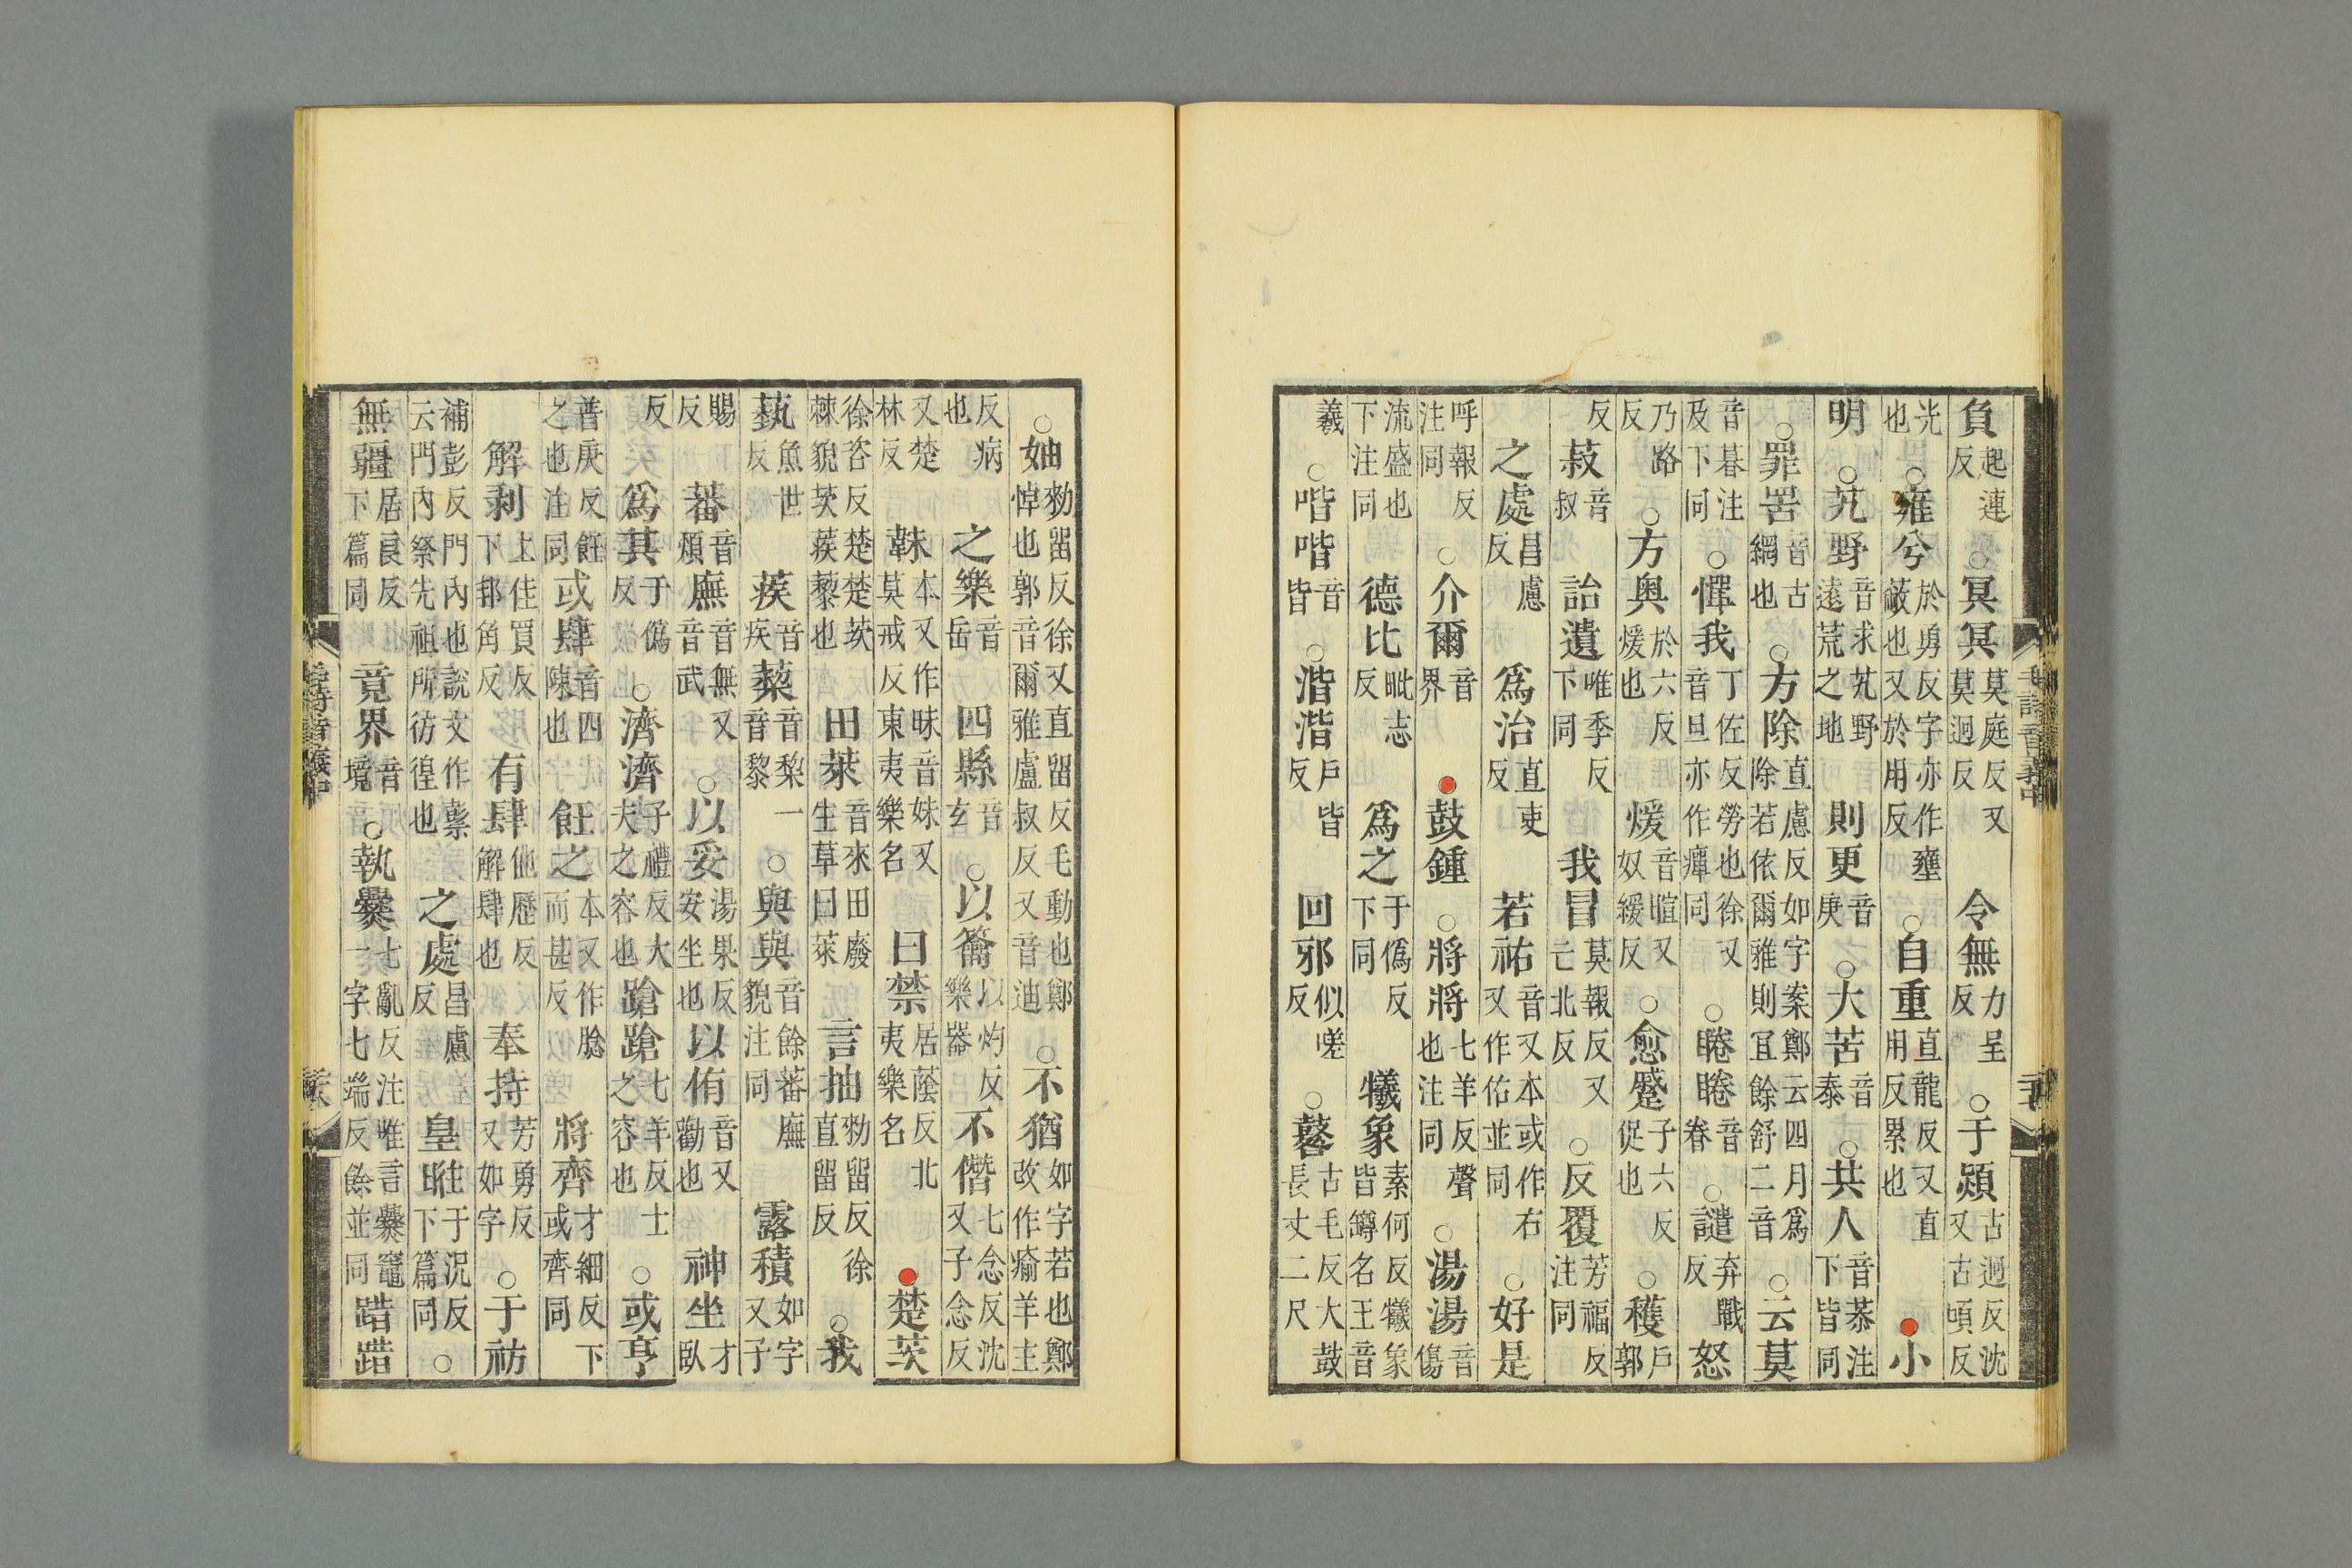 負起連反○冥冥莫庭反又莫迥反令無力呈反○于熲古迥反沈又古頃反
光也○雍兮於勇反字亦作壅蔽也又於用反○自重直龍反又直用反累也●小
明○艽野音求艽野遠荒之地則更音庚○大苦音泰○共人音恭注下皆同
○罪罟音古網也○方除直慮反如字案鄭云四月爲除若依爾雅則宜餘舒二音○云莫
音暮注及下同○憚我丁佐反勞也徐又音旦亦作癉同○睠睠音眷○譴弃戰反怒
乃路反○方奧於六反煖也煖音暄又奴緩反○愈蹙子六反促也○穫戶郭
反菽音叔詒遺唯季反下同我冒莫報反又亡北反○反覆芳福反注同
之處昌慮反爲治直吏反若祐音又本或作右又作佑並同○好是
呼報反注同○介爾音界●鼓鍾○將將七羊反聲也注同○湯湯音傷
流盛也下注同德比毗志反爲之于僞反下同犧象素何反犧象皆罇名王音
羲○喈喈音皆○湝湝戶皆反回邪似嗟反○鼛古毛反大鼓長丈二尺
○妯勑留反徐又直留反毛動也鄭悼也郭音爾雅盧叔反又音迪○不猶如字若也鄭改作瘉羊主
反病也之樂音岳四縣音玄○以籥以灼反樂器不僭七念反沈又子念反
又楚林反韎本又作昧音妹又莫戒反東夷樂名曰禁居蔭反北夷樂名●楚茨
徐咨反楚楚茨棘貌茨蒺藜也田萊音來田廢生草曰萊言抽勑留反徐直留反○我
蓺魚世反蒺音疾蔾音梨一音黎○與與音餘蕃廡貌注同露積如字又子
賜反蕃音煩廡音無又音武○以妥湯果反安坐也以侑音又勸也神坐才臥
反爲其于僞反○濟濟子禮反大夫之容也蹌蹌七羊反士之容也○或亨
普庚反飪之也注同或肆音四陳也飪之本又作腍而甚反將齊才細反下或齊同
解剥上佳買反下邦角反有肆他歷反解肆也奉持芳勇反又如字○于祊
補彭反門內也說文作𥛱云門內祭先祖所彷徨也之處昌慮反皇暀于況反下篇同○
無疆居良反下篇同竟界音境○執爨七亂反注唯言爨竈一字七端反餘並同踖踖